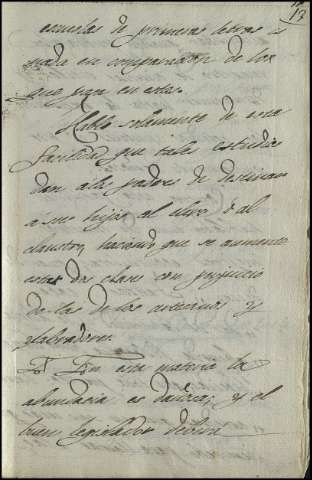 13
escuelas de primeras letras es
nada en comparacion de los
que
Hablo solamente de esta
facilidad que tales estudios
dan a los padres de destinar
a sus hijos al u ó al
claustro, haciendo que se aumenten
estas dos clases con perjuicio
de las de los artesanos y
labradores.
En esta materia la
abundancia es dañosa, y el
buen legislador debiera